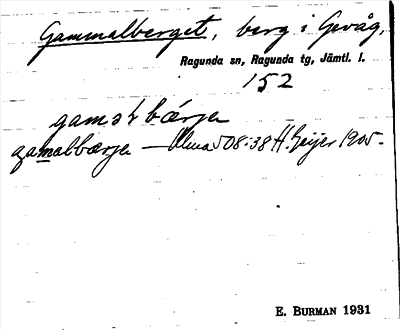 Gammalberget, berg i Gevåg,
Ragunda sn, Ragunda tg, Jämtl. l.
152
gamalbärje
gamalbærje — Ulma 508:38 H. Geijer 1905.
E. BURMAN 1931